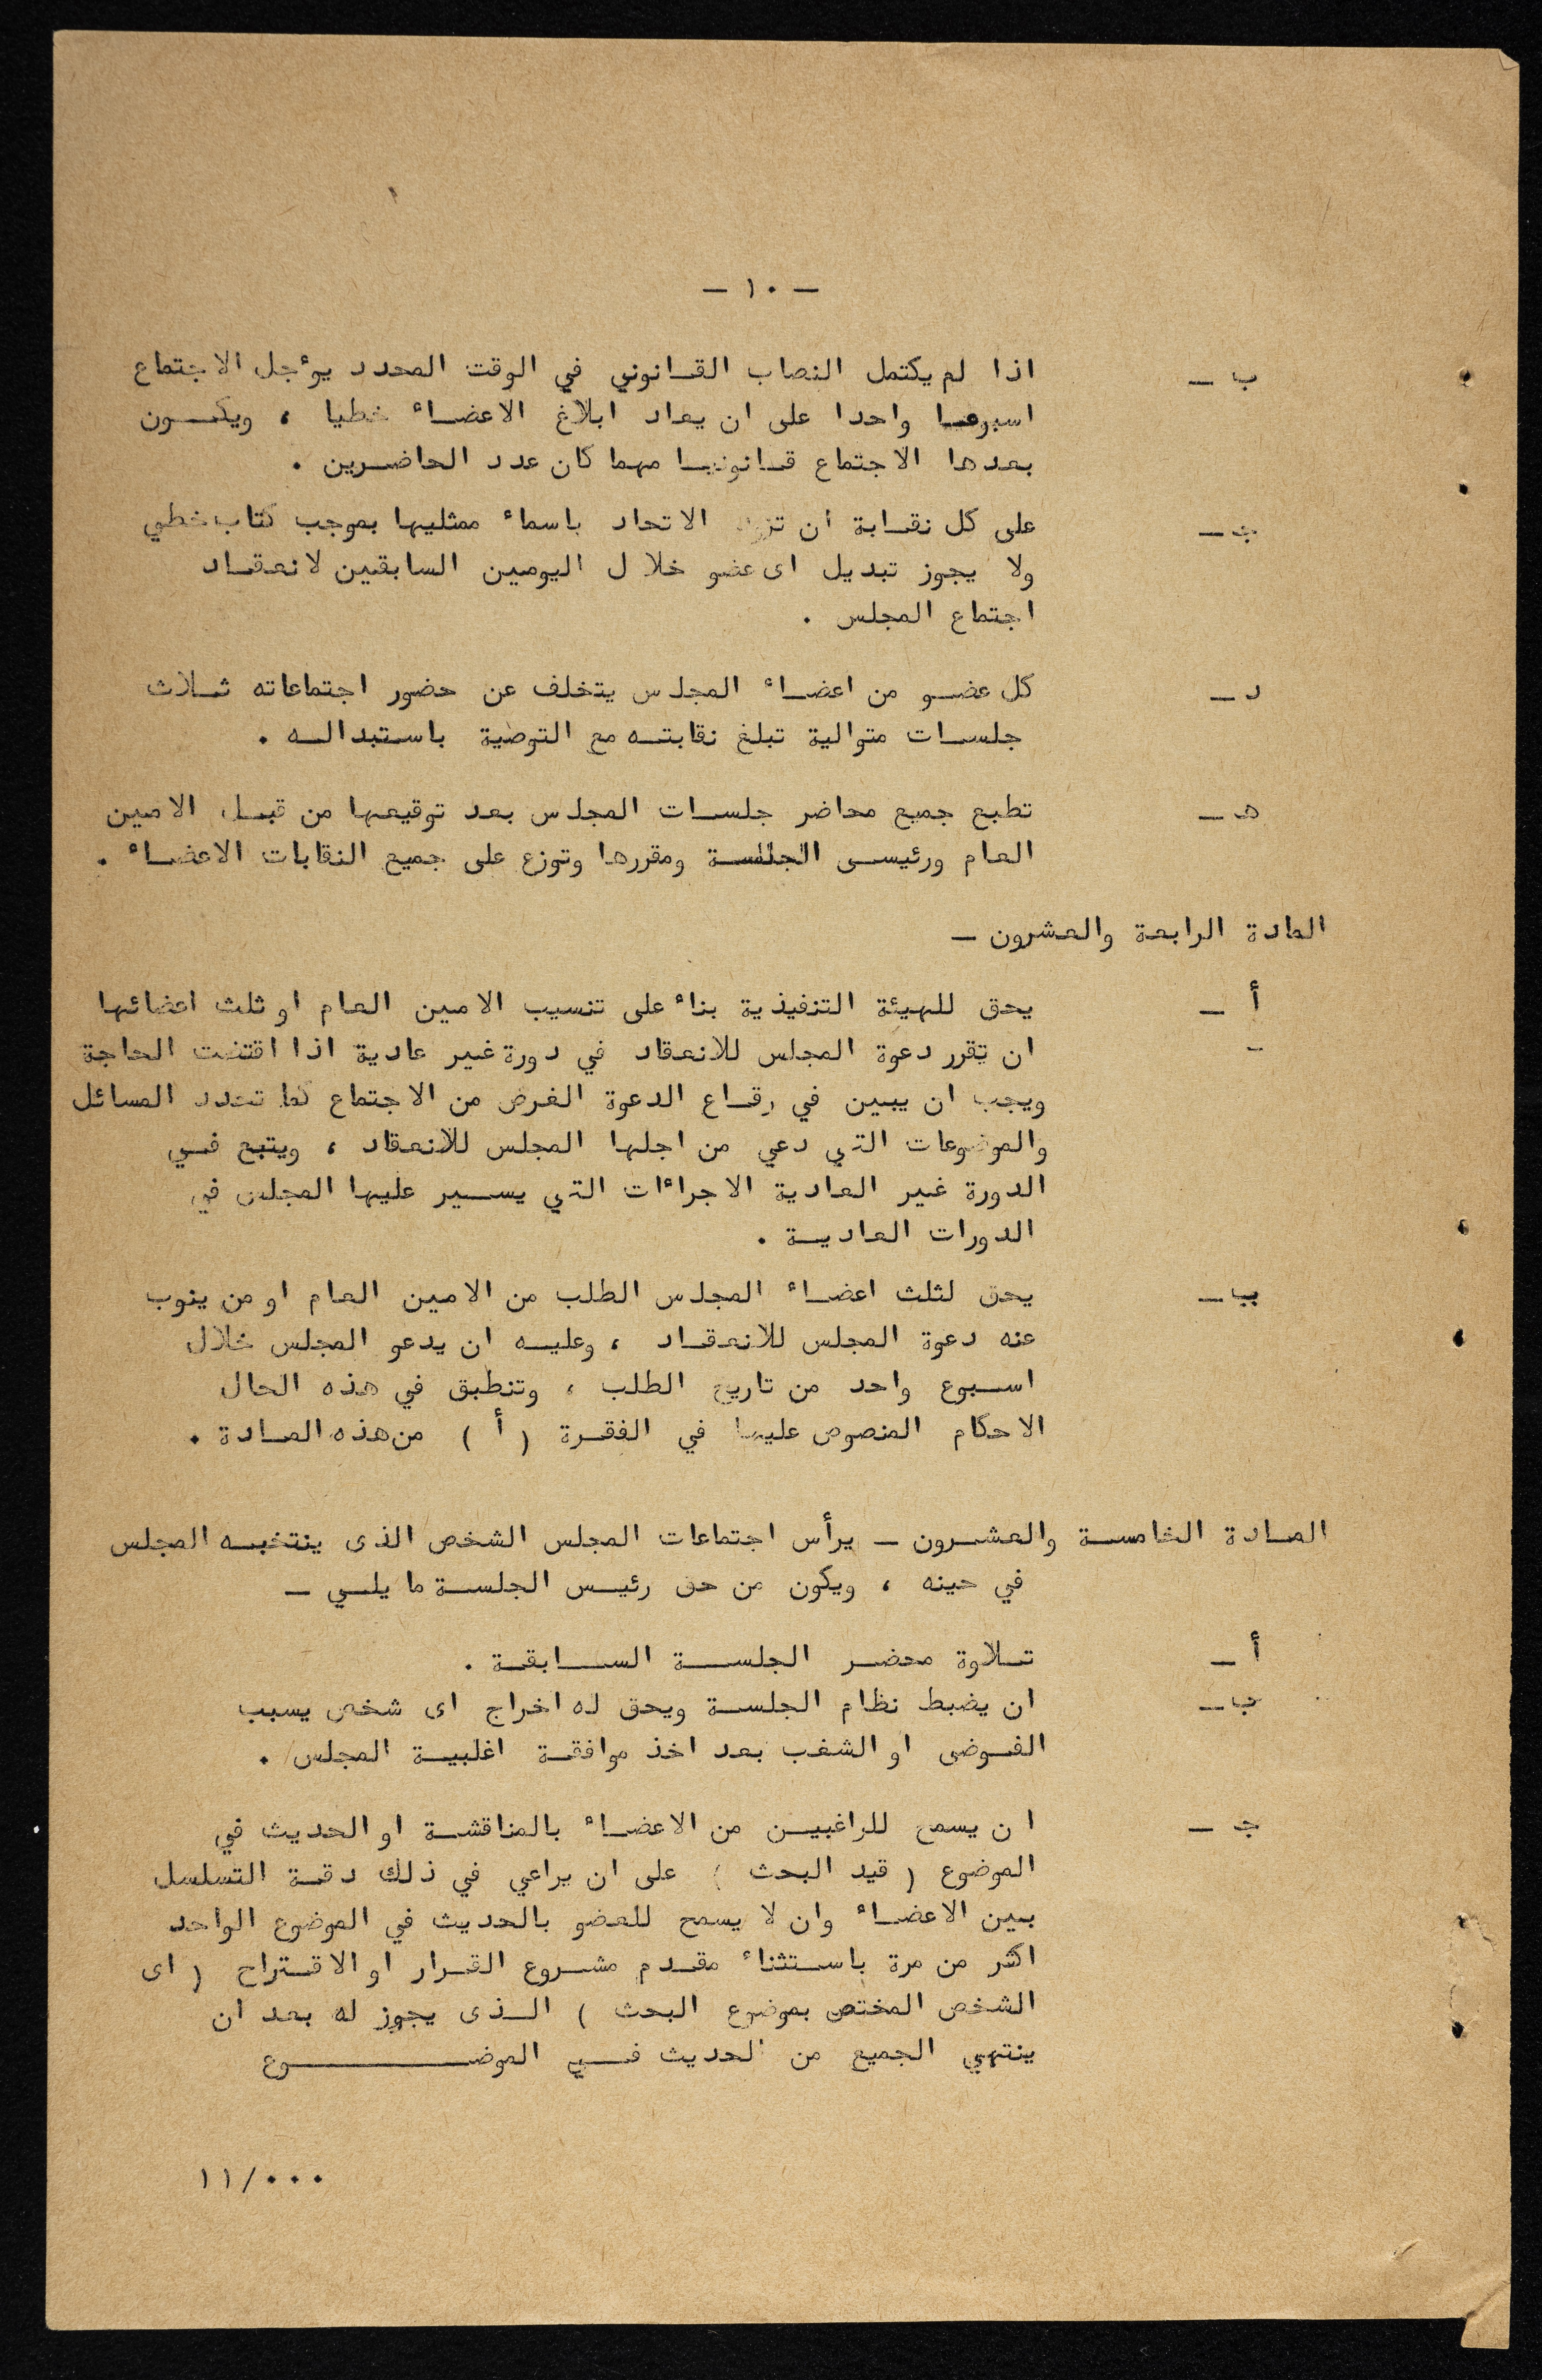 — ١٠ —
ب — اذا لم يكتمل النصاب القانوني في الوقت المحدد يوٴجل الاجتماع
اسبوعا واحدا على ان يعاد ابلاغ الاعضاء خطيا ، ويكون
بعدها الاجتماع قانونيا مهما كان عدد الحاضرين .
ج — على كل نقابة ان تزود الاتحاد باسماء ممثليها بموجب كتاب خطي
ولا يجوز تبديل اى عضو خلال اليومين السابقين لانعقاد
اجتماع المجلس .
د — كل عضو من اعضاء المجلس يتخلف عن حضور اجتماعاته ثلاث
جلسات متوالية تبلغ نقابته مع التوصية باستبداله .
هـ — تطبع جميع محاضر جلسات المجلس بعد توقيعها من قبل الامين
العام ورئيسى الجلسة ومقررها وتوزع على جميع النقابات الاعضاء .
المادة الرابعة والعشرون —
أ — يحق للهيئة التنفيذية بناء على تنسيب الامين العام او ثلث اعضائها
ان تقرر دعوة المجلس للانعقاد في دورة غير عادية اذا اقتضت الحاجة
ويجب ان يبين في رقاع الدعوة الغرض من الاجتماع كما تحدد المسائل
والموضوعات التي دعي من اجلها المجلس للانعقاد ، ويتبع في
الدورة غير العادية الاجراءات التي يسير عليها المجلس في
الدورات العادية .
ب — يحق لثلث اعضاء المجلس الطلب من الامين العام او من ينوب
عنه دعوة المجلس للانعقاد ، وعليه ان يدعو المجلس خلال
اسبوع واحد من تاريخ الطلب ، وتنطبق في هذه الحال
الاحكام المنصوص عليها في الفقرة ( أ ) من هذه المادة .
المادة الخامسة والعشرون — يرأس اجتماعات المجلس الشخص الذى ينتخبه المجلس
في حينه ، ويكون من حق رئيس الجلسة ما يلي —
أ — تلاوة محضر الجلسة السابقة .
ب — ان يضبط نظام الجلسة ويحق له اخراج اى شخص يسبب
الفوضى او الشغب بعد اخذ موافقة اغلبية المجلس .
ج — ان يسمح للراغبين من الاعضاء بالمناقشة او الحديث في
الموضوع ( قيد البحث ) على ان يراعي في ذلك دقة التسلسل
بين الاعضاء وان لا يسمح للعضو بالحديث في الموضوع الواحد
اكثر من مرة باستثناء مقدم مشروع القرار او الاقتراح ( اى
الشخص المختص بموضوع البحث ) الذى يجوز له بعد ان
ينتهي الجميع من الحديث في الموضوع
١١/٠٠٠